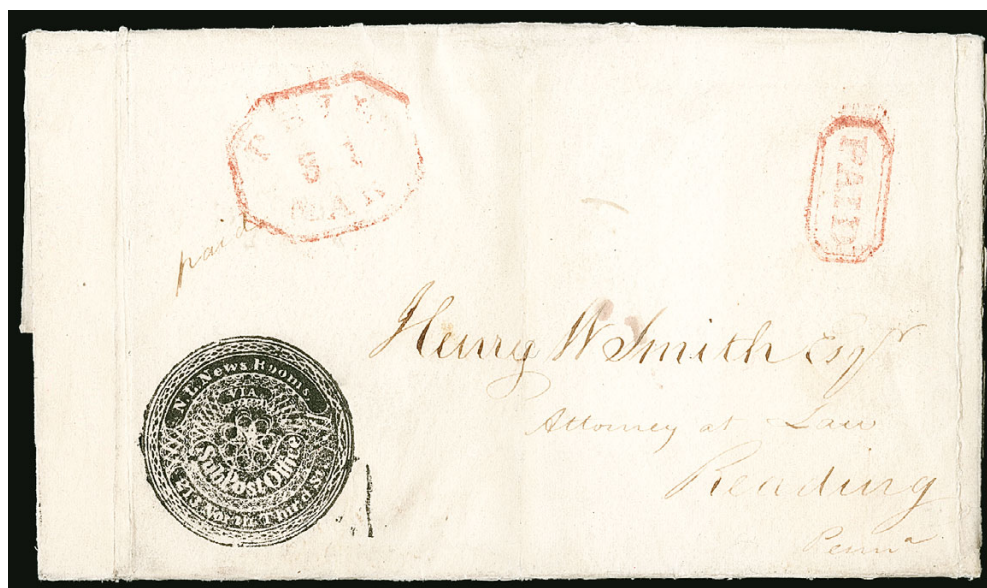 PAID
paid
Henry W Smith Esqr
Attorney at Law
Reading
Penna
N.L. News Rooms
VIA
Sub Post Office